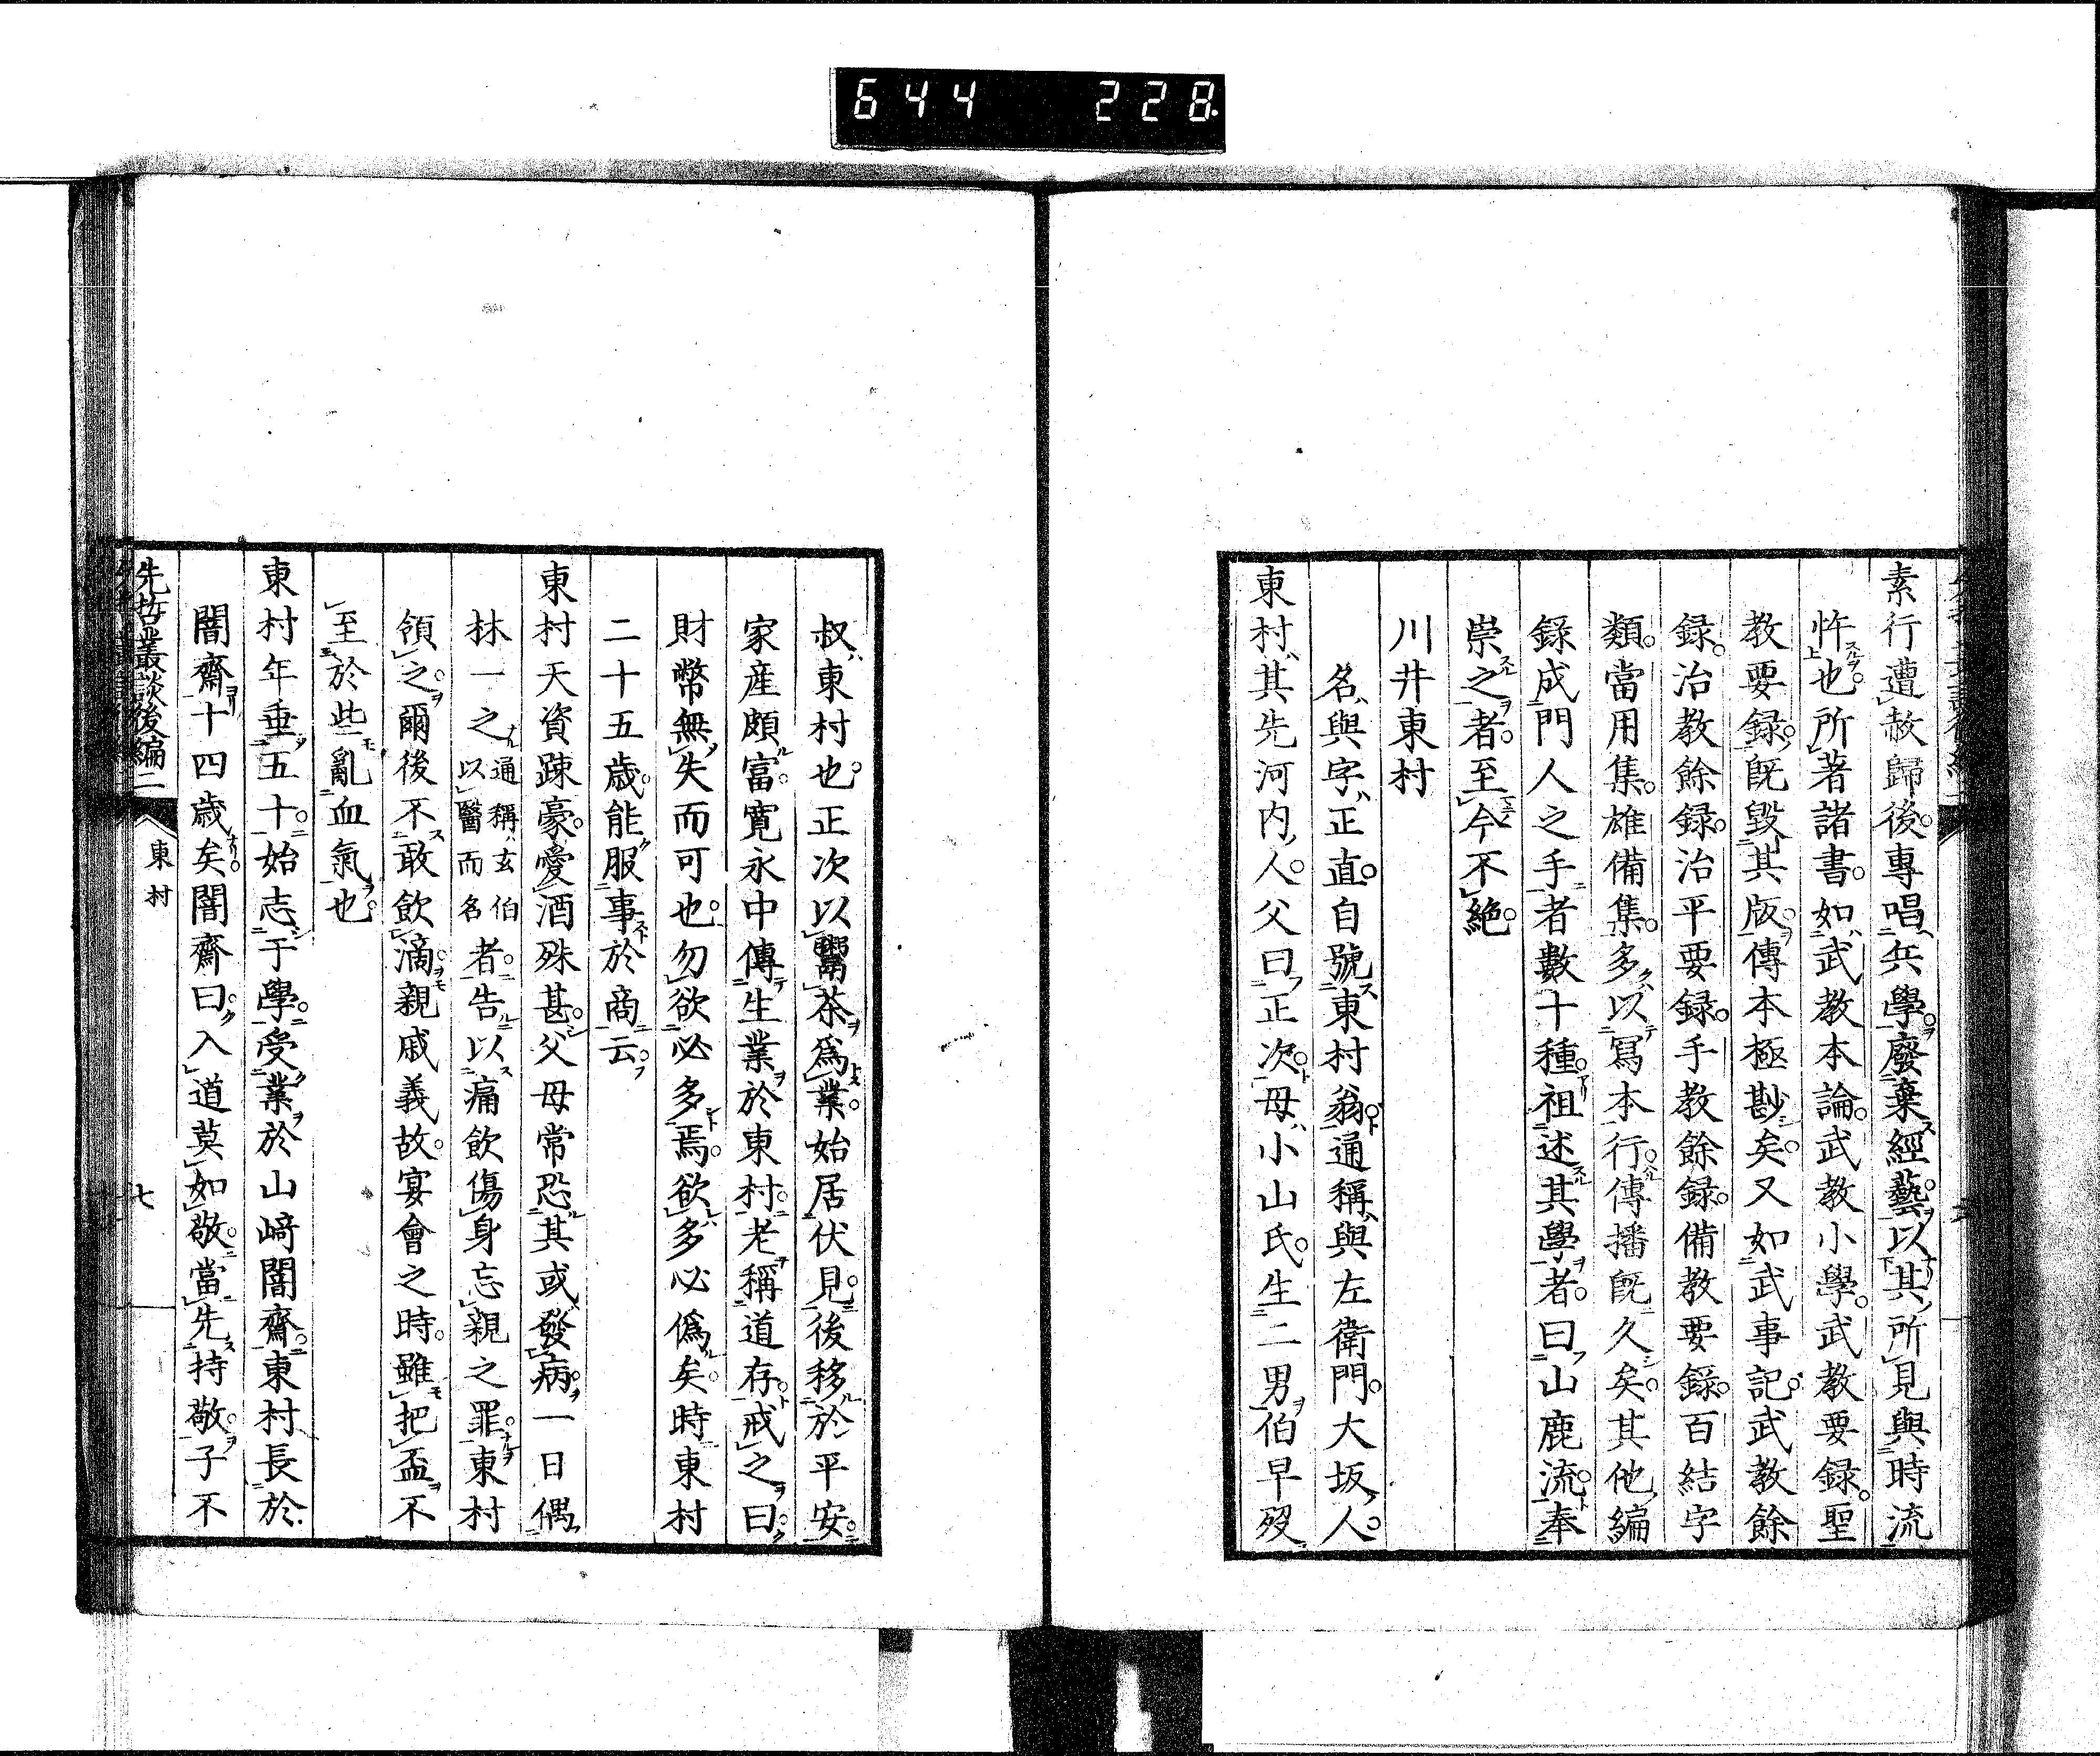 644 228
素行遭赦歸後。專唱兵學。廢棄經藝。以其所見與時流
忤也。所著諸書。如武教本論。武教小學。武教要録。聖
教要録。既毀其版。傳本極尠矣。又如武事記。武教餘
録。治教餘録。治平要録。手教餘録。備教要録。百結字
類。當用集。雄備集。多以寫本行。傳播既久矣。其他編
録成門人之手者數十種。祖述其學者。曰山鹿流。奉
崇之者。至今不絶。
川井東村
名與字。正直。自號東村翁。通稱與左衛門。大坂人。
東村其先河内人。父曰正次。母小山氏。生二男。伯早歿
叔東村也。正次以鬻茶爲業。始居伏見。後移於平安。
家産頗富。寬永中傳生業於東村。老稱道存。戒之曰。
財幣無失而可也。勿欲必多焉。欲多必僞矣。時東村
二十五歲。能服事於商云。
東村天資踈豪。愛酒殊甚。父母常恐其或發病。一日偶
林一之通稱玄伯以醫而名者。告以痛飲傷身忘親之罪。東村
領之。爾後不敢飲滴。親戚義故。宴會之時。雖把盃不
至於些亂血氣也。
東村年垂五十。始志于學。受業於山﨑闇齋。東村長於
闇齋十四歲矣。闇齋曰。入道莫如敬。當先持敬。子不
先哲叢談後編二
東村
七